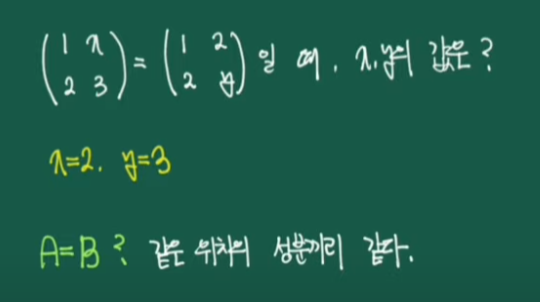 (1 x
2 3) = (1 2
2 y) 일 때, x, y의 값은?
x=2, y=3
A=B ? 같은 위치의 성분끼리 같다.